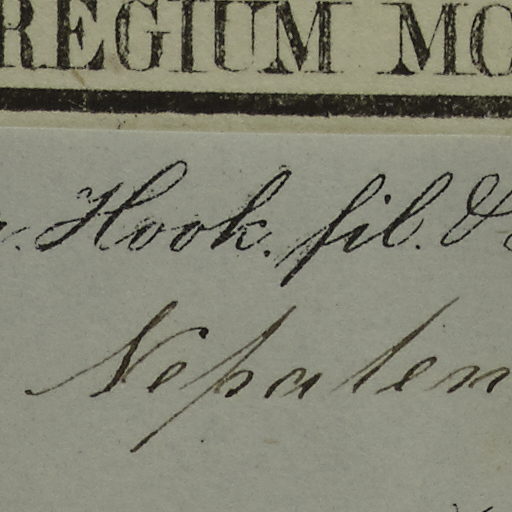 REGIUM MO
. Hook. fil. &
Nepalen